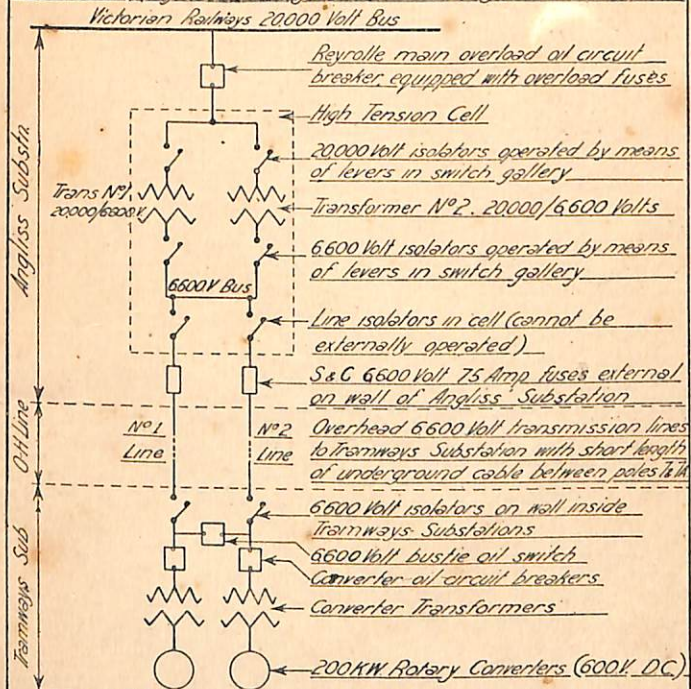 Victorian Railways 20,000 Volt Bus
Reyrolle main overload oil circuit
breaker, equipped with overload fuses
High Tension Cell
20,000 Volt isolators operated by means
of levers in switch gallery
Trans Nº1
20,000/6600 V.
Transformer Nº2. 20,000/6,600 Volts
6,600 Volt isolators operated by means
of levers in switch gallery
6,600V Bus
Line isolators in cell (cannot be
externally operated)
S&C 6,600 Volt 75 Amp fuses external
on wall of Angliss Substation
Angliss Substn.
Nº1
Line
Nº2
Line
Overhead 6,600 Volt transmission lines
to Tramways Substation with short length
of underground cable between poles
O-H Line
6,600 Volt isolators on wall inside
Tramways Substations
6,600 Volt bustie oil switch
Converter oil circuit breakers
Converter Transformers
200 KW. Rotary Converters (600 V. D.C.)
Tramways Sub